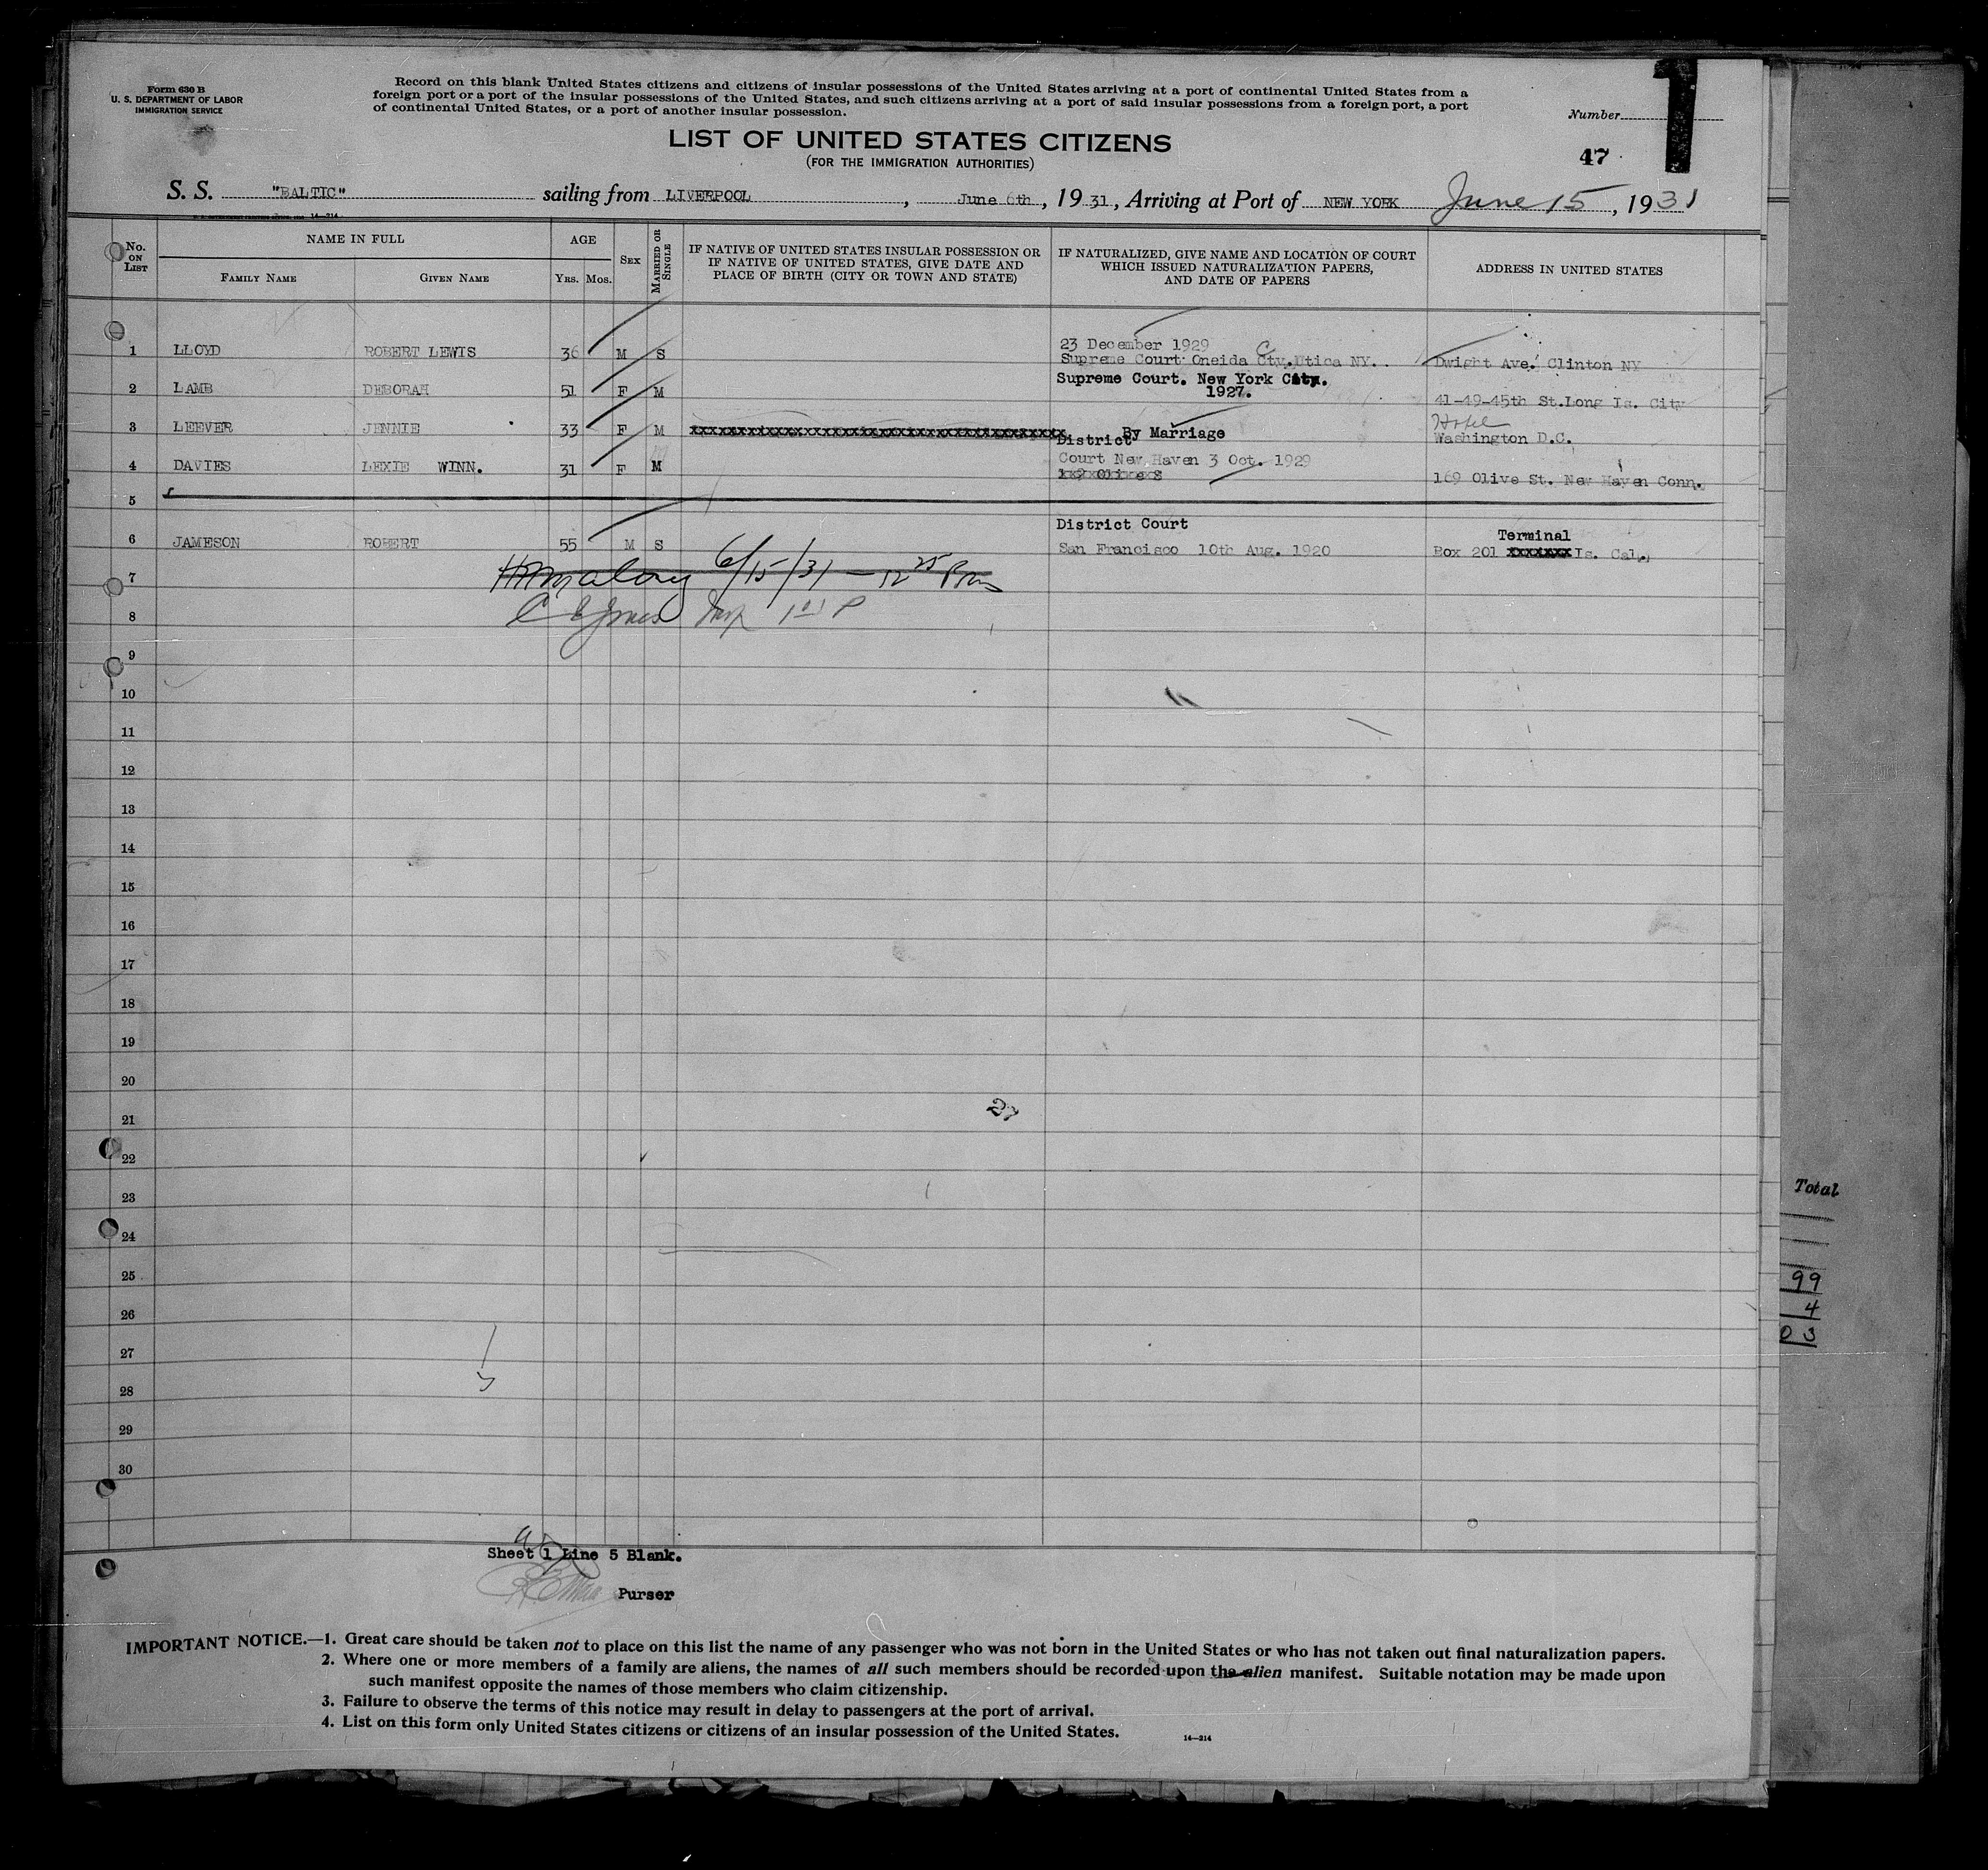 Form 630 B
U. S. DEPARTMENT OF LABOR
IMMIGRATION SERVICE
Record on this blank United States citizens and citizens of insular possessions of the United States arriving at a port of continental United States from a
foreign port or a port of the insular possessions of the United States, and such citizens arriving at a port of said insular possessions from a foreign port, a port
of continental United States, or a port of another insular possession.
Number
1
47
LIST OF UNITED STATES CITIZENS
(FOR THE IMMIGRATION AUTHORITIES)
S. S. "BALTIC" sailing from LIVERPOOL, June 6th, 1931, Arriving at Port of NEW YORK June 15, 1931
14—214
No. ON LIST
NAME IN FULL
FAMILY NAME
GIVEN NAME
AGE
YRS.
MOS.
SEX
MARRIED OR SINGLE
IF NATIVE OF UNITED STATES INSULAR POSSESSION OR
IF NATIVE OF UNITED STATES, GIVE DATE AND
PLACE OF BIRTH (CITY OR TOWN AND STATE)
IF NATURALIZED, GIVE NAME AND LOCATION OF COURT
WHICH ISSUED NATURALIZATION PAPERS,
AND DATE OF PAPERS
ADDRESS IN UNITED STATES
23 December 1929
1 LLOYD ROBERT LEWIS 36 M S Supreme Court Oneida Cty. Utica NY. Dwight Ave. Clinton NY
Supreme Court. New York City.
2 LAMB DEBORAH 51 F M 1927. 41-49-45th St. Long Is. City
Hotel
3 LEEVER JENNIE 33 F M xxxxxxxxxxxxxxxxxxxxxxxxxxxxxxxxxxxxx By Marriage Washington D.C.
District
4 DAVIES LEXIE WINN. 31 F M Court New Haven 3 Oct. 1929
169 Olive St. New Haven Conn.
5
District Court
Terminal
6 JAMESON ROBERT 55 M S San Francisco 10th Aug. 1920 Box 201 xxxxxxx Is. Cal.
7 6/15/31 — 12 25
8
9
10
11
12
13
14
15
16
17
18
19
20
21
27
22
23
24
25
26
27
28
29
30
Total
99
4
03
Sheet 1 Line 5 Blank.
Purser
IMPORTANT NOTICE.—1. Great care should be taken not to place on this list the name of any passenger who was not born in the United States or who has not taken out final naturalization papers.
2. Where one or more members of a family are aliens, the names of all such members should be recorded upon the alien manifest. Suitable notation may be made upon
such manifest opposite the names of those members who claim citizenship.
3. Failure to observe the terms of this notice may result in delay to passengers at the port of arrival.
4. List on this form only United States citizens or citizens of an insular possession of the United States.
14—214